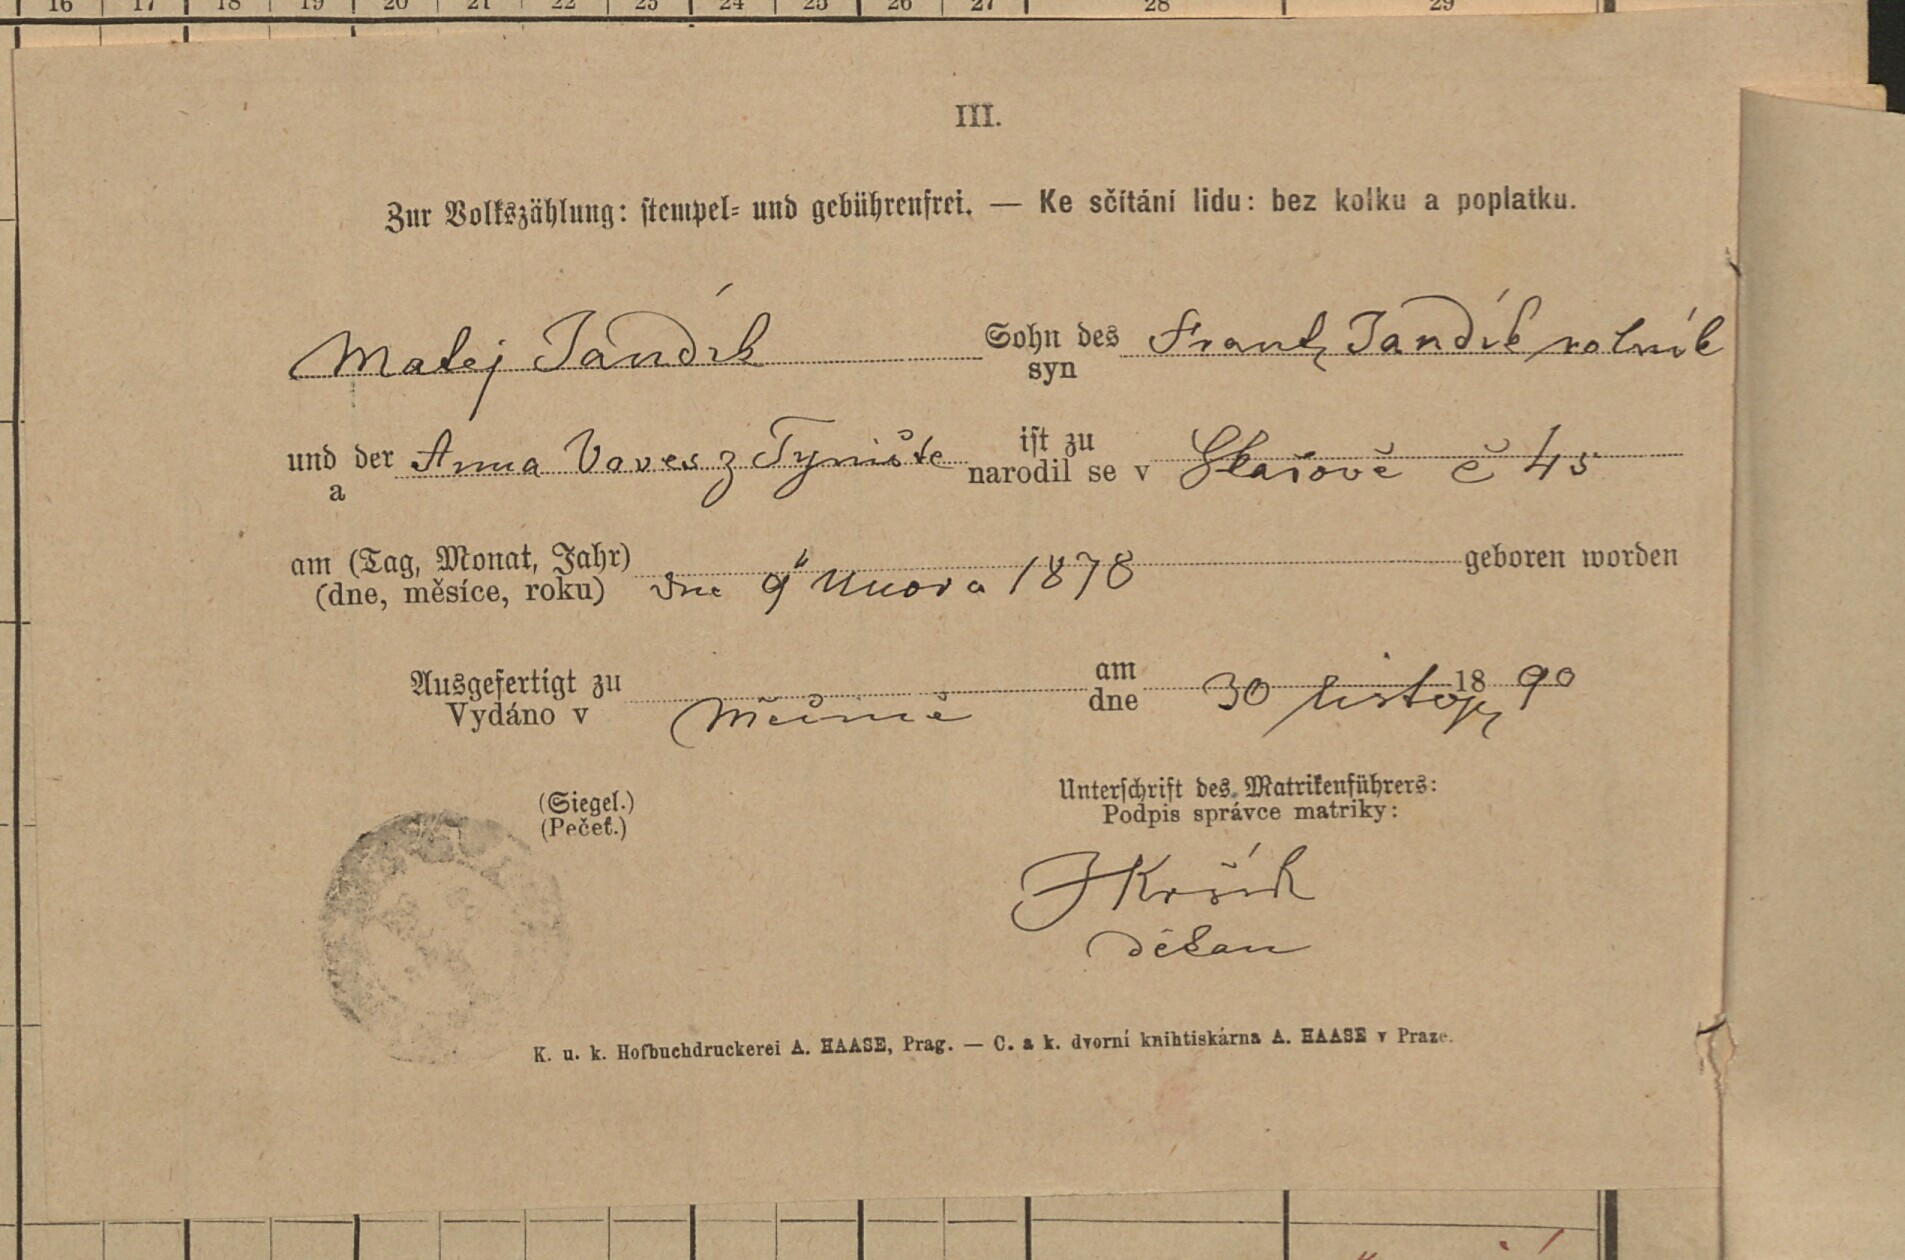 16 17 18 19 20 21 22 23 24 25 26 27 28 29
III.
Zur Volkszählung: stempel- und gebührenfrei. — Ke sčítání lidu: bez kolku a poplatku.
Matej Jandík Sohn des syn Frant. Jandík rolník
und der a Anna Voves z Tyniště ist zu narodil se v Skašově č 45
am (Tag, Monat, Jahr) geboren worden
(dne, měsíce, roku) dne 9" Unora 1878
Ausgefertigt zu am
Vydáno v dne 30 listop. 1890
(Siegel.)
(Pečeť.)
Unterschrift des Matrikenführers:
Podpis správce matriky:
J Kršík
děkan
K. u. k. Hofbuchdruckerei A. HAASE, Prag. — C. a k. dvorní knihtiskárna A. HAASE v Praze.